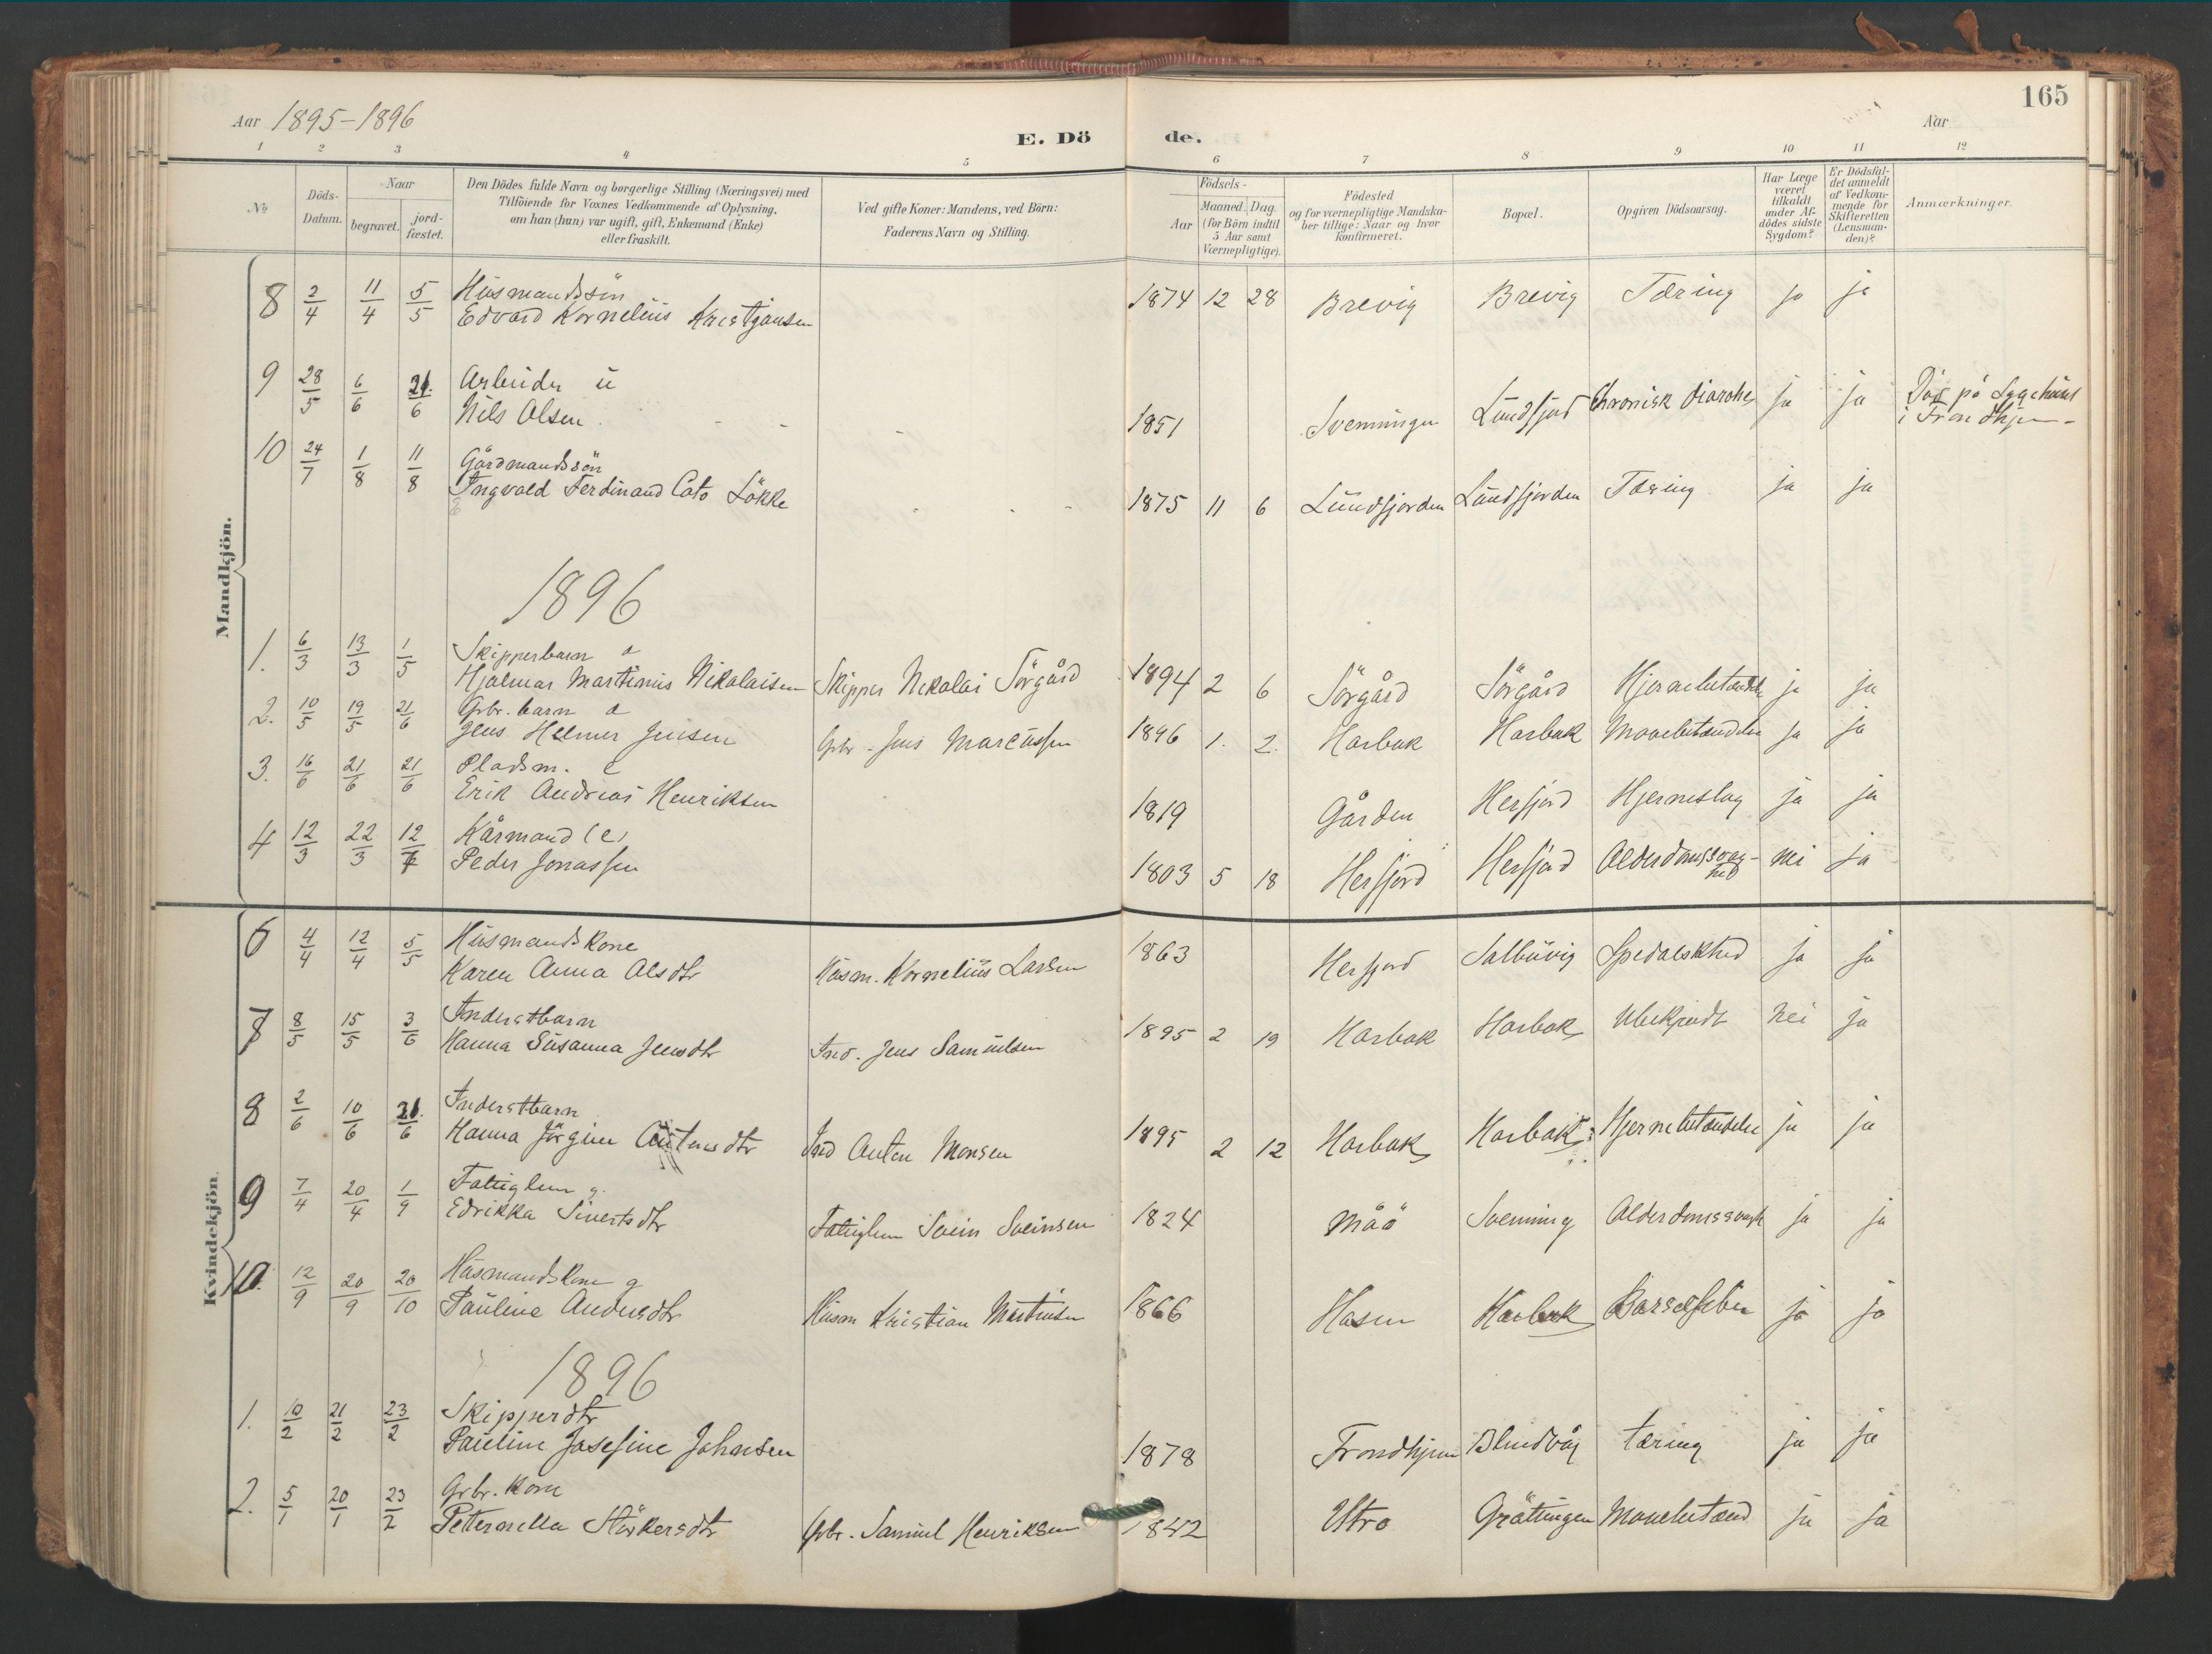 165
Aar 1895-1896
E. Dö de.
Aar
1 2 3 4 5 6 7 8 9 10 11 12
No
Döds-
Datum.
Naar
begravet.
jord-
fæstet.
Den Dödes fulde Navn og borgerlige Stilling (Næringsvei) med
Tilföiende for Voxnes Vedkommende af Oplysning,
om han (hun) var ugift, gift, Enkemand (Enke)
eller fraskilt.
Ved gifte Koner: Mandens, ved Börn:
Faderens Navn og Stilling.
Födsels-
Aar
Maaned. Dag
(for Börn indtil
5 Aar samt
Værnepligtige).
Födested
og for værnepligtige Mandska-
ber tillige: Naar og hvor
konfirmeret.
Bopæl.
Opgiven Dödsaarsag.
Har Læge
været
tilkaldt
under Af-
dödes sidste
Sygdom?
Er Dödsfal-
det anmeldt
af Vedkom-
mende for
Skifteretten
(Lensman-
den)?
Anmærkninger.
Mandkjön.
8 2/4 11/4 5/5 Husmandssön
Edvard Kornelius Kristjansen 1874 12 28 Brevig Brevig Tæring ja ja
9 28/5 6/6 21/6 Arbeider u
Nils Olsen 1851 Svenningen Lundfjord Chronisk diarohe ja ja Död på Sygehuset
i Trondhjem
10 24/7 1/8 11/8 Gårdmandssön
Ingvald Ferdinand Cato Lökke 1875 11 6 Lundfjorden Lundfjorden Tæring ja ja
1896
1. 6/3 13/3 1/5 Skipperbarn a
Hjalmar Martinius Nikolaisen Skipper Nikolai Sörgård 1894 2 6 Sörgård Sörgård Hjernebetændelse ja ja
2. 10/5 19/5 21/6 Grbr. barn a
Jens Helmer Jensen Grbr. Jens Marcussen 1896 1. 2. Harbak Harbak Mavebetændelse ja ja
3. 16/6 21/6 21/6 Pladsm. e
Erik Andreas Henriksen 1819 Gården Herfjord Hjerneslag ja ja
4 12/3 22/3 12/7 Kårmand (e)
Peder Jonassen 1803 5 18 Herfjord Herfjord Alderdomssvag-
hed nei ja
Kvindekjön.
6 4/4 12/4 5/5 Husmandskone
Karen Anna Olsdtr Husm. Kornelius Larsen 1863 Herfjord Salbuvig Spedalskhed ja ja
7 8/5 15/5 3/6 Inderstbarn
Hanna Susanna Jensdtr Ind. Jens Samuelsen 1895 2 19 Harbak Harbak Ubekjendt nei ja
8 2/6 10/6 21/6 Inderstbarn
Hanna Jörgine Antonsdtr Ind Anton Monsen 1895 2 12 Harbak Harbak Hjernebetændelse ja ja
9 7/4 20/4 1/9 Fattiglem g.
Edrikka Sivertsdtr Fattiglem Svein Sveinsen 1824 Måö Svenning Alderdomssvagh ja ja
10. 12/9 20/9 20/10 Husmandskone g
Pauline Andersdtr Husm Kristian Martinsen 1866 Hasen Harbak Barselfeber ja ja
1896
1. 10/2 21/2 23/2 Skipperdtr
Pauline Josefine Johnsen 1878 Trondhjem Blindvåg tæring ja ja
2. 5/1 20/1 23/2 Grbr. Kone
Peternella Störkersdtr Grbr. Samuel Henriksen 1842 Ustro Gråttingen Mavebetænd ja ja